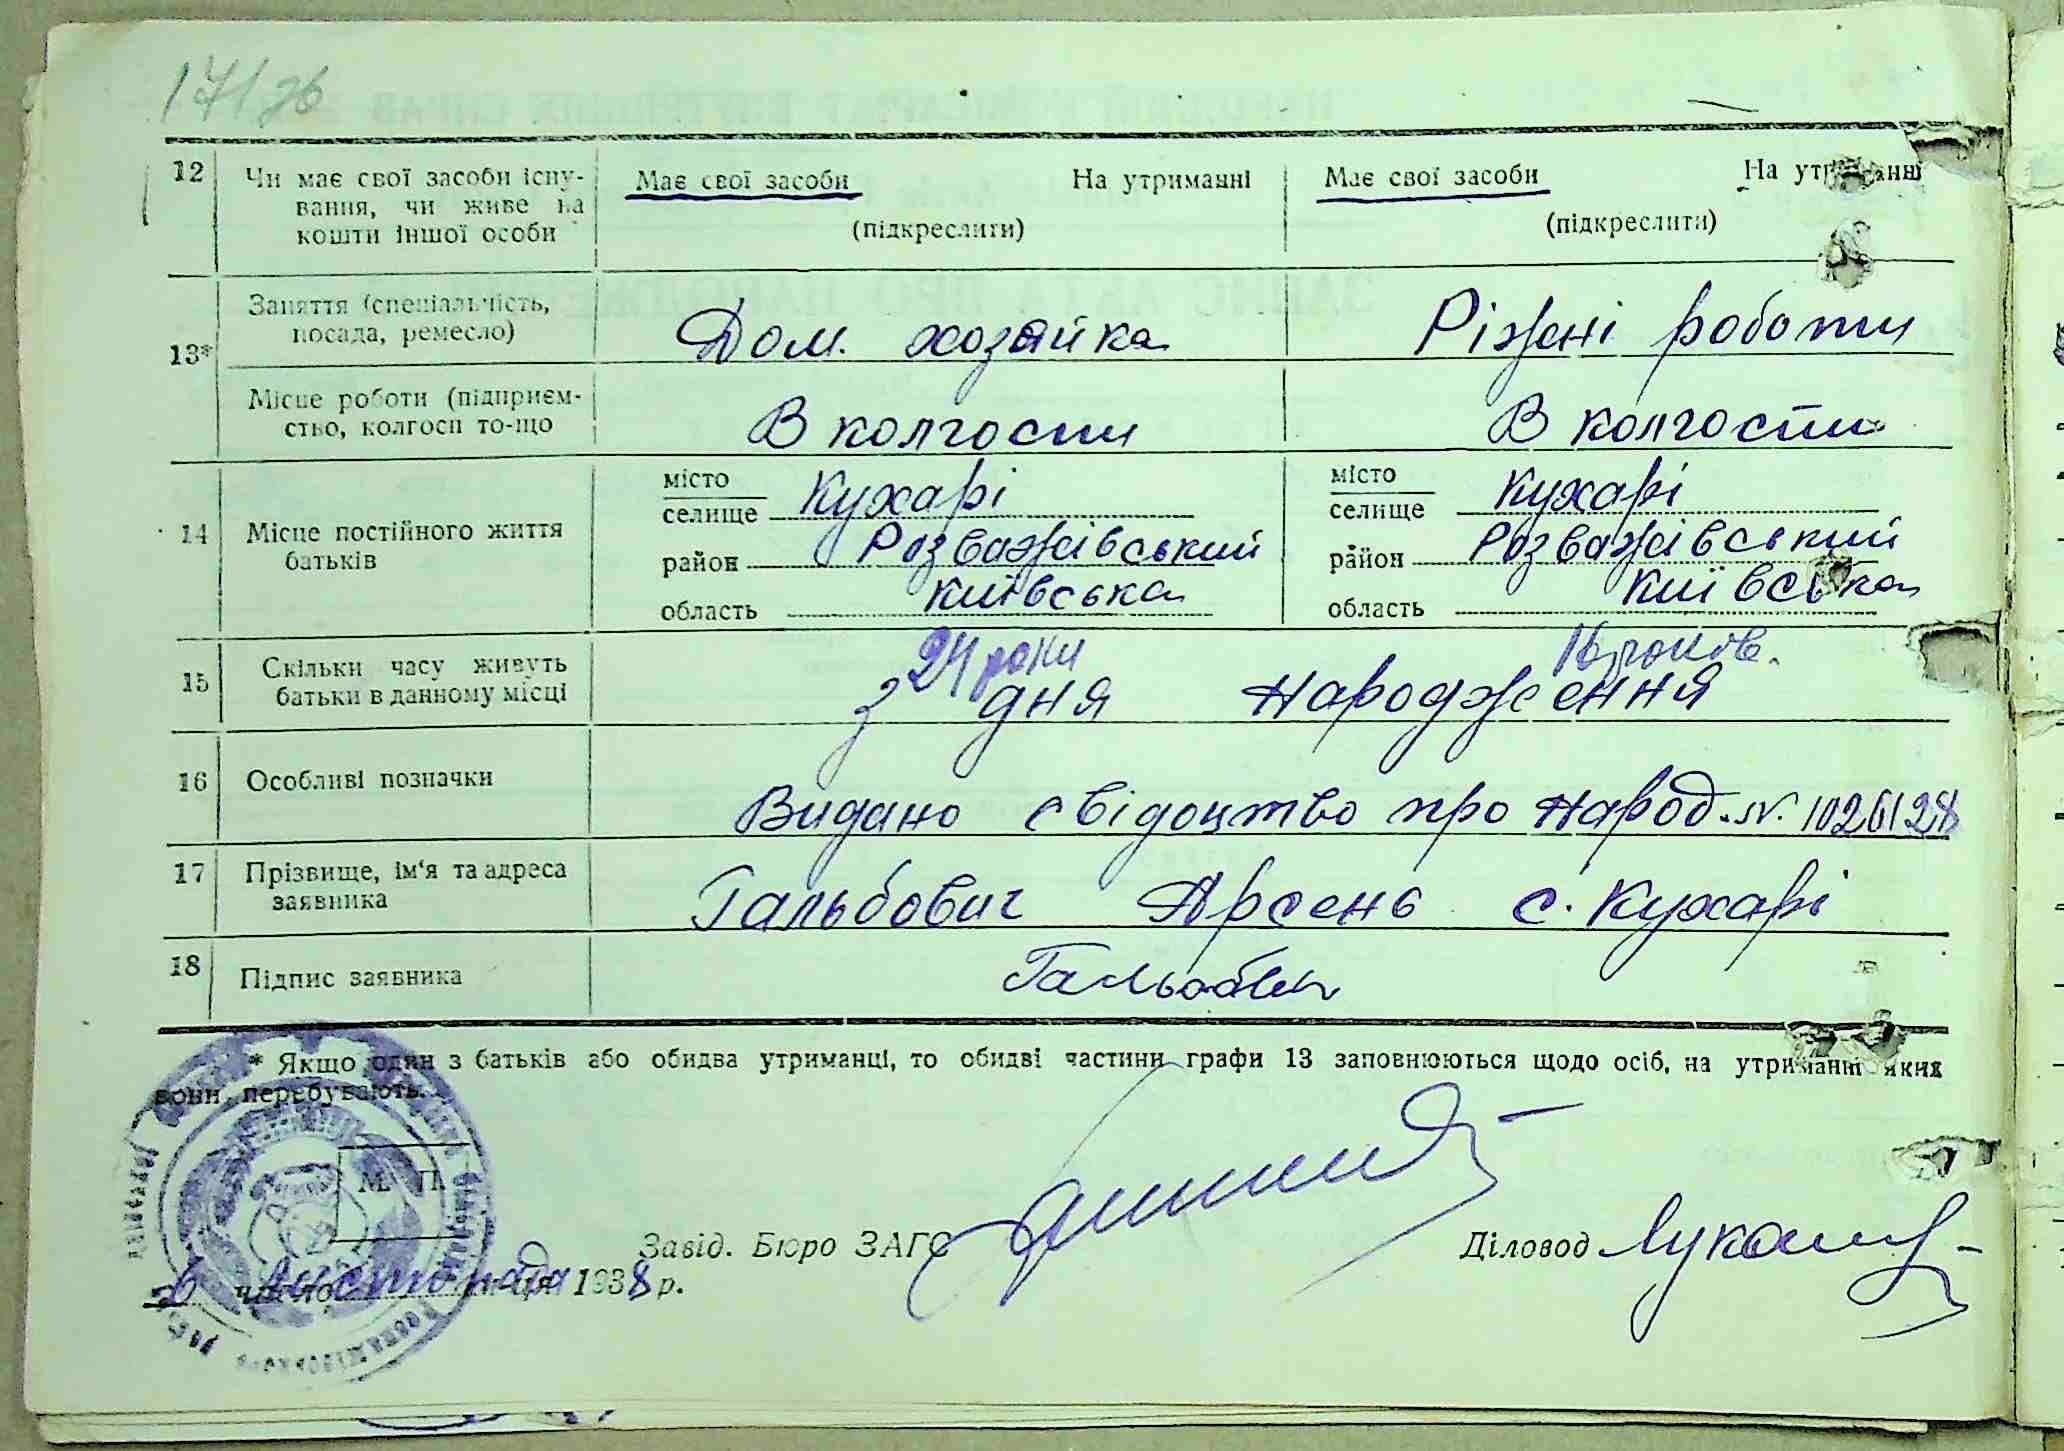 171 зв
12 Чи має свої засоби існу-
вання, чи живе на
кошти іншої особи
Має свої засоби На утриманні
(підкреслити)
Має свої засоби На утриманні
(підкреслити)
13*
Заняття (спеціальність,
посада, ремесло)
Дом. хозяйка Ріжні роботи
Місце роботи (підприєм-
ство, колгосп то-що
В колгоспи В колгоспи
14 Місце постійного життя
батьків
місто
селище Кухарі
район Розважівський
область київська
місто
селище Кухарі
район Розважівський
область київська
15 Скільки часу живуть
батьки в данному місці
24 роки 16 років.
з дня народження
16 Особливі позначки
Видано свідоцтво про народ. N. 1026128
17 Прізвище, ім'я та адреса
заявника
Гальбович Арсень с. Кухарі
18 Підпис заявника
* Якщо один з батьків або обидва утриманці, то обидві частини графи 13 заповнюються щодо осіб, на утриманні яких
вони перебувають.
М. П.
Завід. Бюро ЗАГС
Діловод
6 листопада 1938 р.